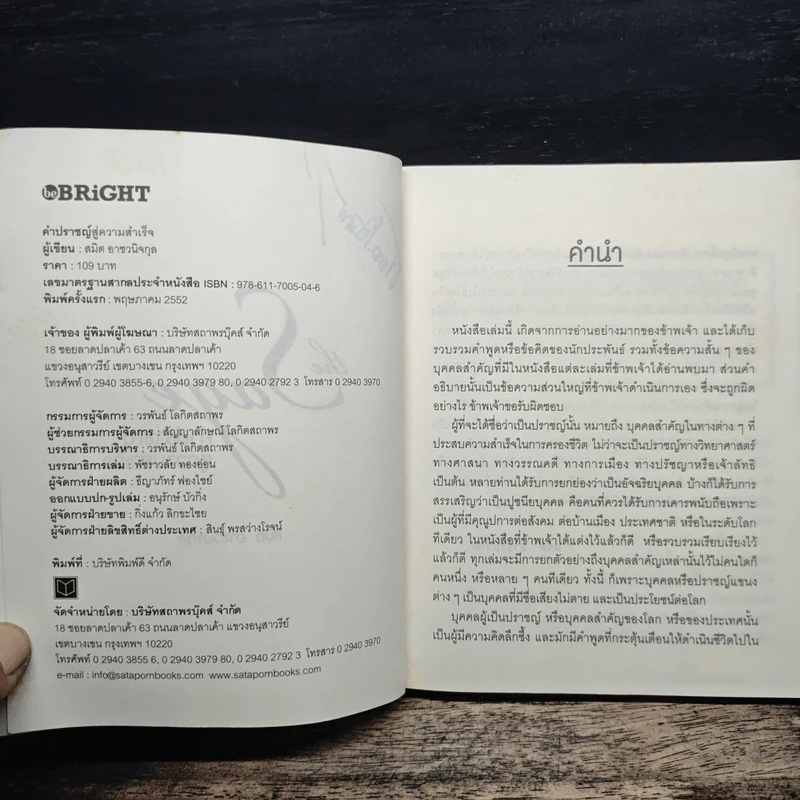 beBRiGHT
คำปราชญ์สู่ความสำเร็จ
ผู้เขียน : สมิต อาชวนิจกุล
ราคา : 109 บาท
เลขมาตรฐานสากลประจำหนังสือ ISBN : 978-611-7005-04-6
พิมพ์ครั้งแรก : พฤษภาคม 2552
เจ้าของ ผู้พิมพ์ผู้โฆษณา : บริษัทสถาพรบุ๊คส์ จำกัด
18 ซอยลาดปลาเค้า 63 ถนนลาดปลาเค้า
แขวงอนุสาวรีย์ เขตบางเขน กรุงเทพฯ 10220
โทรศัพท์ 0 2940 3855-6, 0 2940 3979 80, 0 2940 2792 3 โทรสาร 0 2940 3970
กรรมการผู้จัดการ : วรพันธ์ โลกิตสถาพร
ผู้ช่วยกรรมการผู้จัดการ : สัญญาลักษณ์ โลกิตสถาพร
บรรณาธิการบริหาร : วรพันธ์ โลกิตสถาพร
บรรณาธิการเล่ม : พัชราวลัย ทองอ่อน
ผู้จัดการฝ่ายผลิต : ธีญาภัทร์ ฟองไซย์
ออกแบบปก-รูปเล่ม : อนุรักษ์ บัวกิ่ง
ผู้จัดการฝ่ายขาย : กิ่งแก้ว ลิกขะไชย
ผู้จัดการฝ่ายลิขสิทธิ์ต่างประเทศ : สินธุ์ พรสว่างโรจน์
พิมพ์ที่ : บริษัทพิมพ์ดี จำกัด
จัดจำหน่ายโดย : บริษัทสถาพรบุ๊คส์ จำกัด
18 ซอยลาดปลาเค้า 63 ถนนลาดปลาเค้า แขวงอนุสาวรีย์
เขตบางเขน กรุงเทพฯ 10220
โทรศัพท์ 0 2940 3855 6, 0 2940 3979 80, 0 2940 2792 3 โทรสาร 0 2940 3970
e-mail : info@satapornbooks.com www.satapornbooks.com
คำนำ
หนังสือเล่มนี้ เกิดจากการอ่านอย่างมากของข้าพเจ้า และได้เก็บ
รวบรวมคำพูดหรือข้อคิดของนักประพันธ์ รวมทั้งข้อความสั้น ๆ ของ
บุคคลสำคัญที่มีในหนังสือแต่ละเล่มที่ข้าพเจ้าได้อ่านพบมา ส่วนคำ
อธิบายนั้นเป็นข้อความส่วนใหญ่ที่ข้าพเจ้าดำเนินการเอง ซึ่งจะถูกผิด
อย่างไร ข้าพเจ้าขอรับผิดชอบ
ผู้ที่จะได้ชื่อว่าเป็นปราชญ์นั้น หมายถึง บุคคลสำคัญในทางต่าง ๆ ที่
ประสบความสำเร็จในการครองชีวิต ไม่ว่าจะเป็นปราชญ์ทางวิทยาศาสตร์
ทางศาสนา ทางวรรณคดี ทางการเมือง ทางปรัชญาหรือเจ้าลัทธิ
เป็นต้น หลายท่านได้รับการยกย่องว่าเป็นอัจฉริยบุคคล บ้างก็ได้รับการ
สรรเสริญว่าเป็นปูชนียบุคคล คือคนที่ควรได้รับการเคารพนับถือเพราะ
เป็นผู้ที่มีคุณูปการต่อสังคม ต่อบ้านเมือง ประเทศชาติ หรือในระดับโลก
ทีเดียว ในหนังสือที่ข้าพเจ้าได้แต่งไว้แล้วก็ดี หรือรวบรวมเรียบเรียงไว้
แล้วก็ดี ทุกเล่มจะมีการยกตัวอย่างถึงบุคคลสำคัญเหล่านั้นไว้ไม่คนใดก็
คนหนึ่ง หรือหลาย ๆ คนทีเดียว ทั้งนี้ ก็เพราะบุคคลหรือปราชญ์แขนง
ต่าง ๆ เป็นบุคคลที่มีชื่อเสียงไม่ตาย และเป็นประโยชน์ต่อโลก
บุคคลผู้เป็นปราชญ์ หรือบุคคลสำคัญของโลก หรือของประเทศนั้น
เป็นผู้มีความคิดลึกซึ้ง และมักมีคำพูดที่กระตุ้นเตือนให้ดำเนินชีวิตไปใน